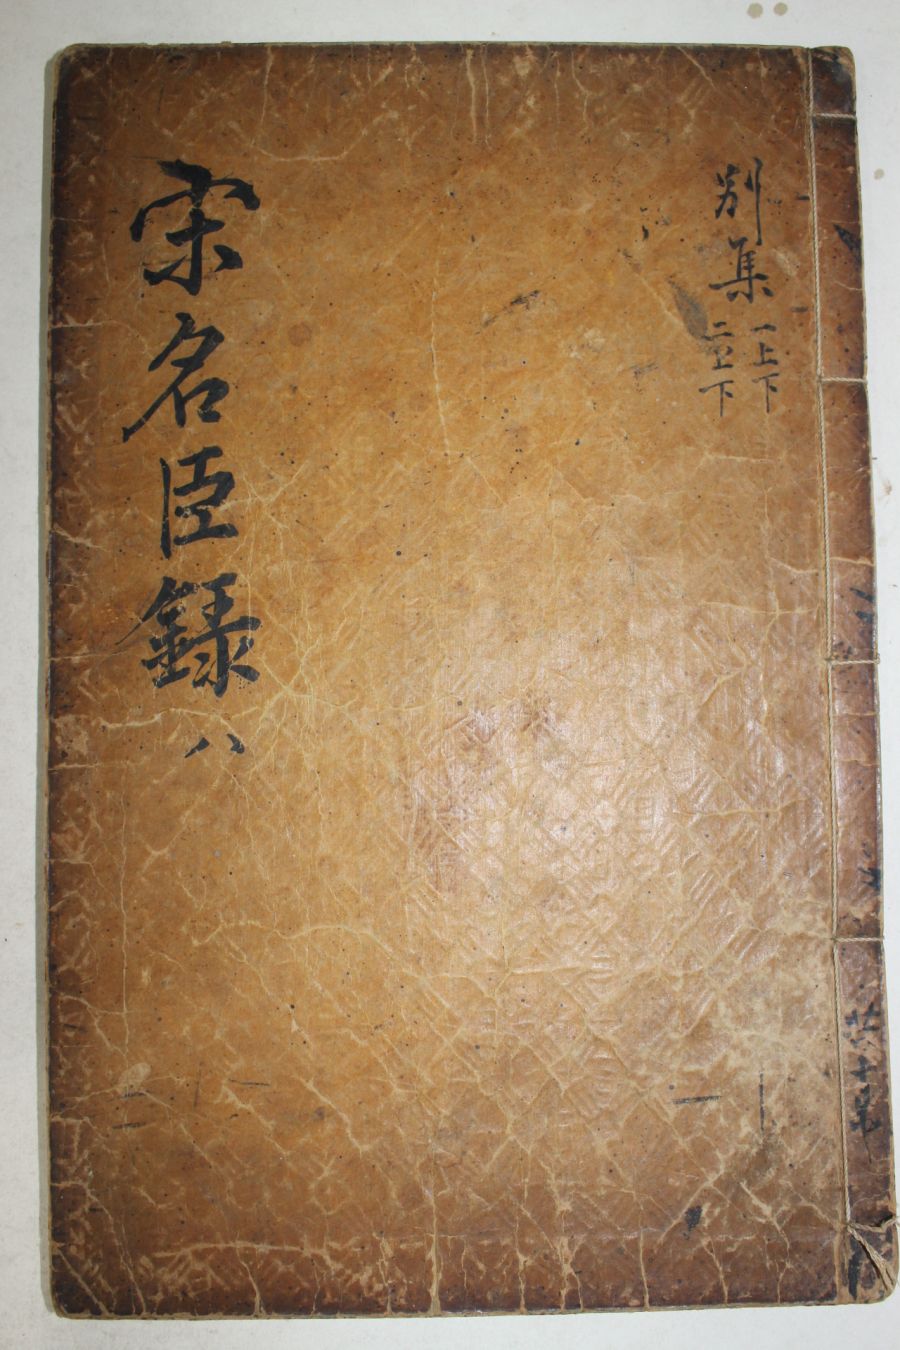 別集
一上下
二上下
宋名臣錄 八
共十